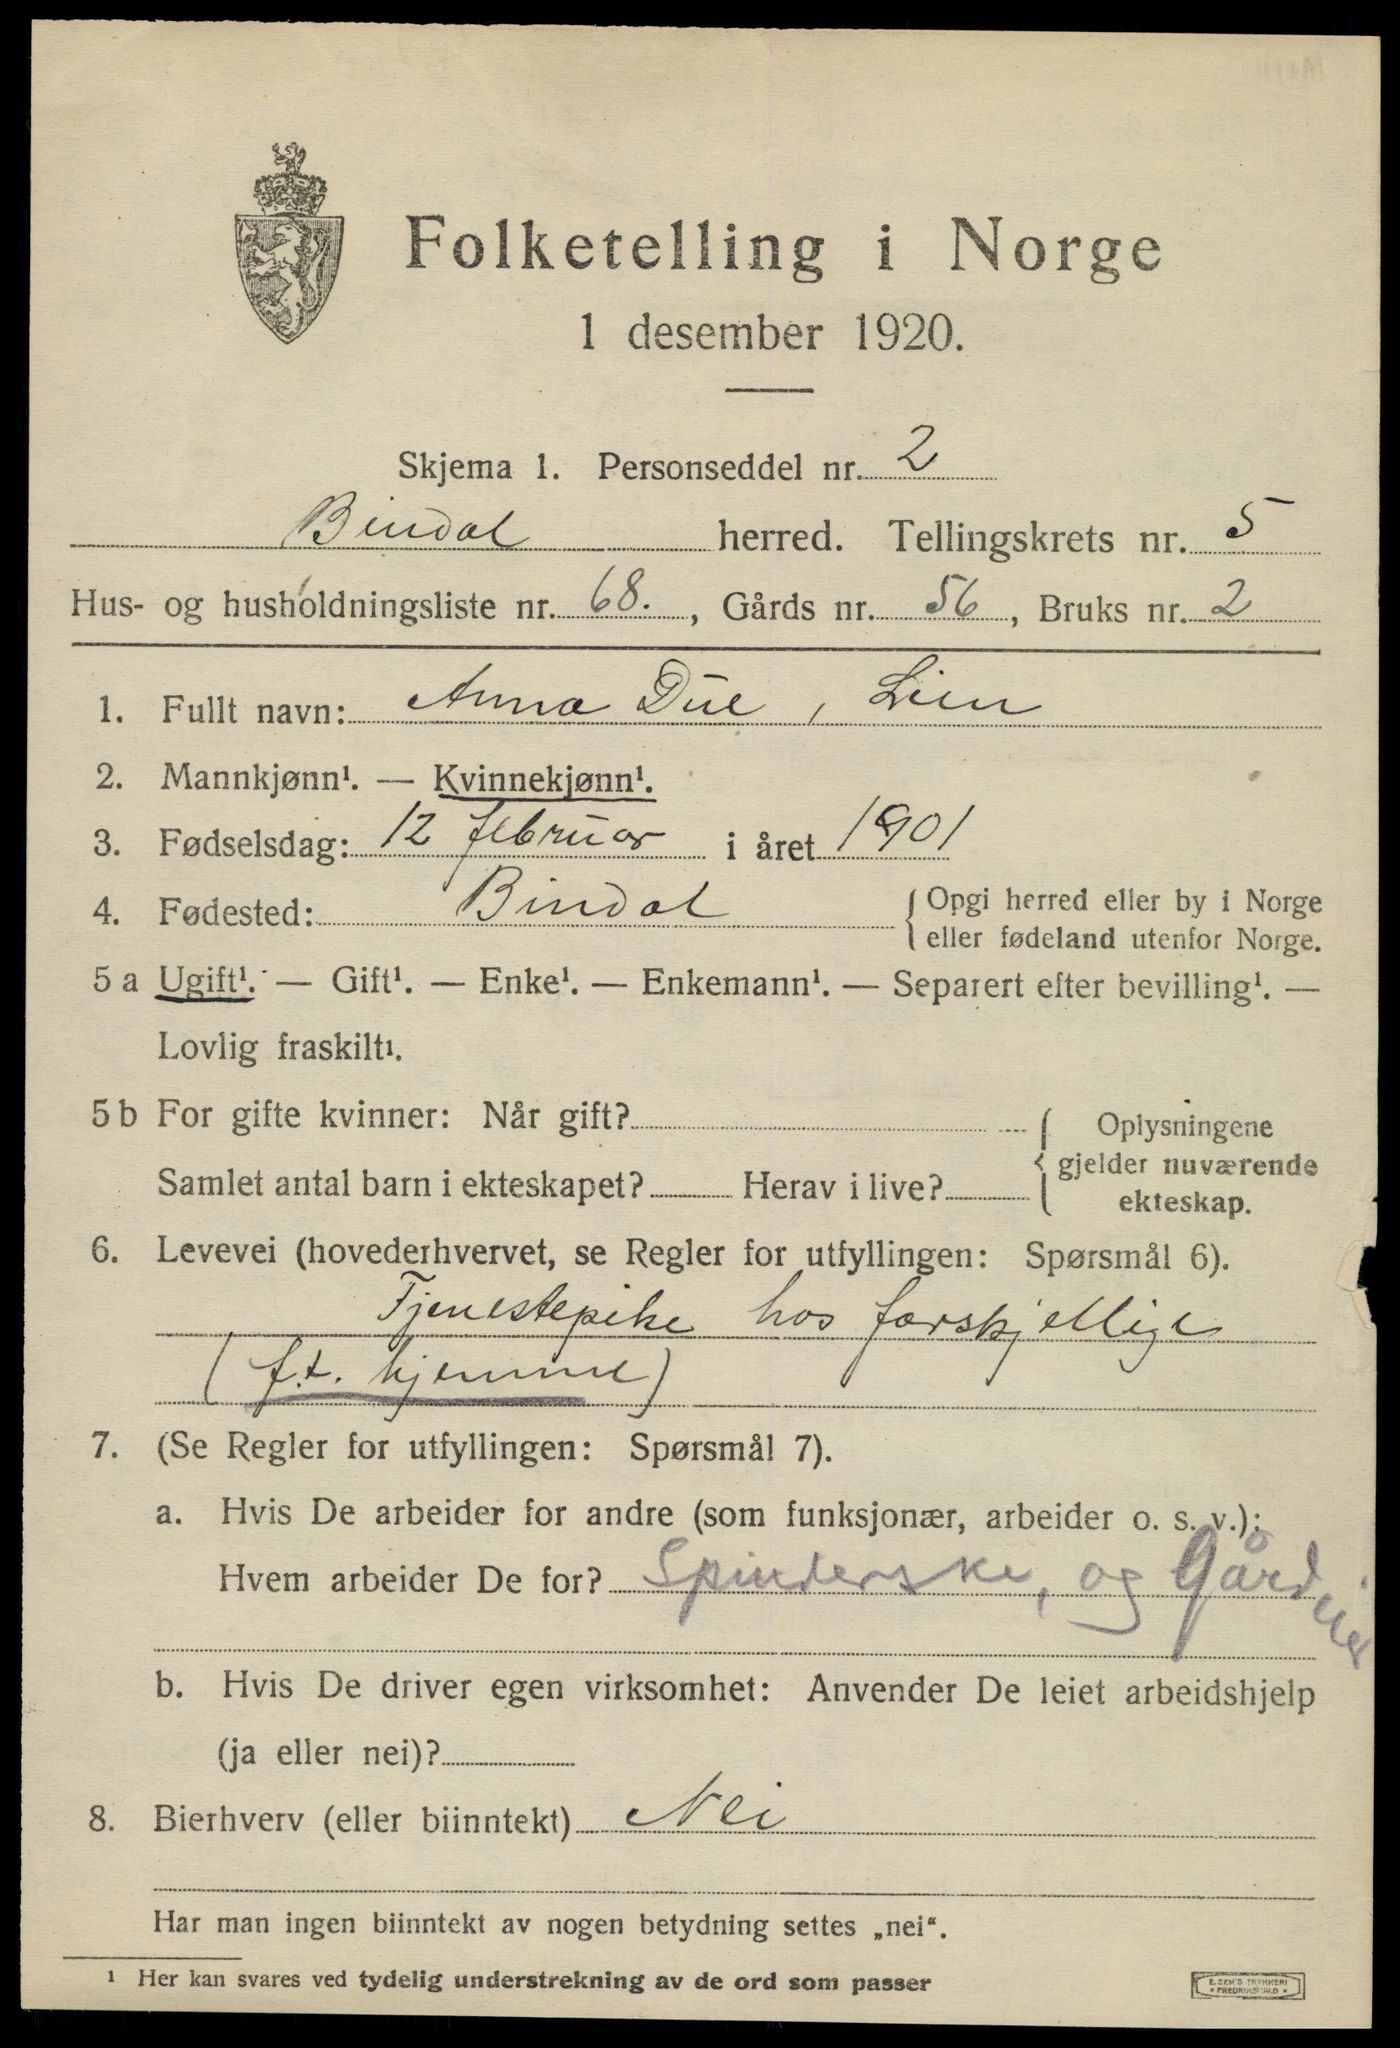 Folketelling i Norge
1 desember 1920.
Skjema 1. Personseddel nr. 2
Bindal herred. Tellingskrets nr. 5
Hus- og husholdningsliste nr. 68. , Gårds nr. 56 , Bruks nr. 2
1. Fullt navn: Anna Due , Lien
2. Mannkjønn¹. — Kvinnekjønn¹.
3. Fødselsdag: 12 februar i året 1901
4. Fødested: Bindal { Opgi herred eller by i Norge
eller fødeland utenfor Norge.
5 a Ugift¹. — Gift¹. — Enke¹. — Enkemann¹. — Separert efter bevilling¹. —
Lovlig fraskilt¹.
5 b For gifte kvinner: Når gift? { Oplysningene
gjelder nuværende
Samlet antal barn i ekteskapet? Herav i live?
ekteskap.
6. Levevei (hovederhvervet, se Regler for utfyllingen: Spørsmål 6).
Tjenestepike hos forskjellige
(f.t. hjemme)
7. (Se Regler for utfyllingen: Spørsmål 7).
a. Hvis De arbeider for andre (som funksjonær, arbeider o. s. v.):
Hvem arbeider De for? Spinderske, og Gård
b. Hvis De driver egen virksomhet: Anvender De leiet arbeidshjelp
(ja eller nei)?
8. Bierhverv (eller biinntekt) Nei
Har man ingen biinntekt av nogen betydning settes „nei“.
¹ Her kan svares ved tydelig understrekning av de ord som passer
E. SEM'S TRYKKERI
* FREDRIKSHALD *